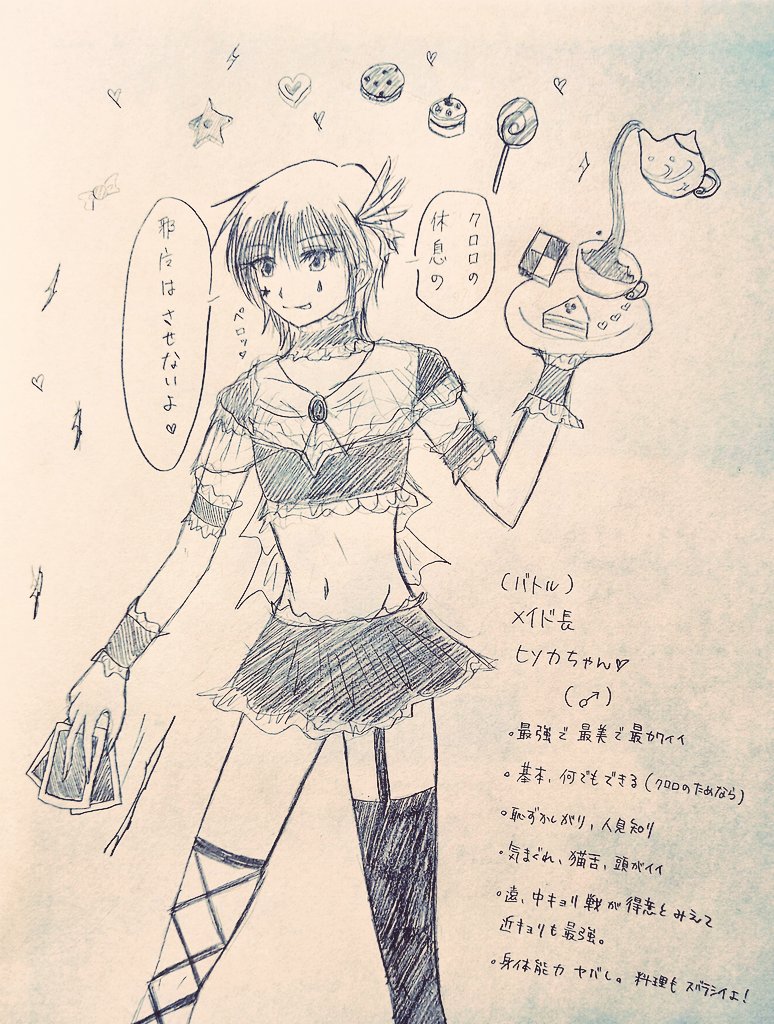 クロロの
休息の
邪広はさせないよ♡
ペロッ♡
(バトル)
メイド長
ヒソカちゃん♡
(♂)
・最強で最美で最カワイイ
・基本、何でもできる(クロロのためなら)
・恥ずかしがり、人見知り
・気まぐれ、猫舌、頭がイイ
・遠、中キョリ戦が得意とみえて
近キョリも最強。
・身体能力ヤバし。料理もズバラシイよ!